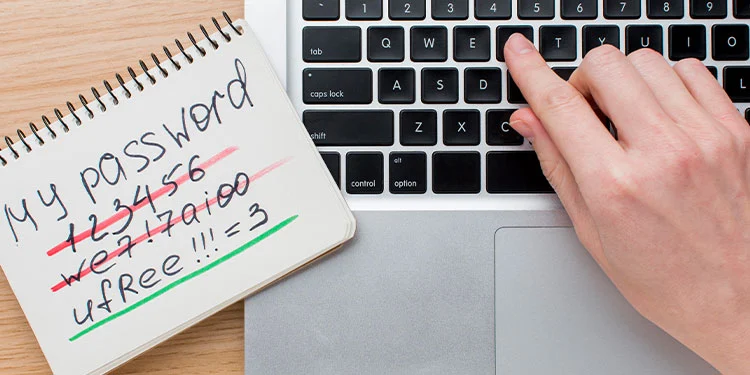 My password
123456
we7!7aioo
ufree!!!=3
1 2 3 4 5 6 7 8 9
tab Q W E T Y U I O
caps lock A S D L
shift Z X
control alt option